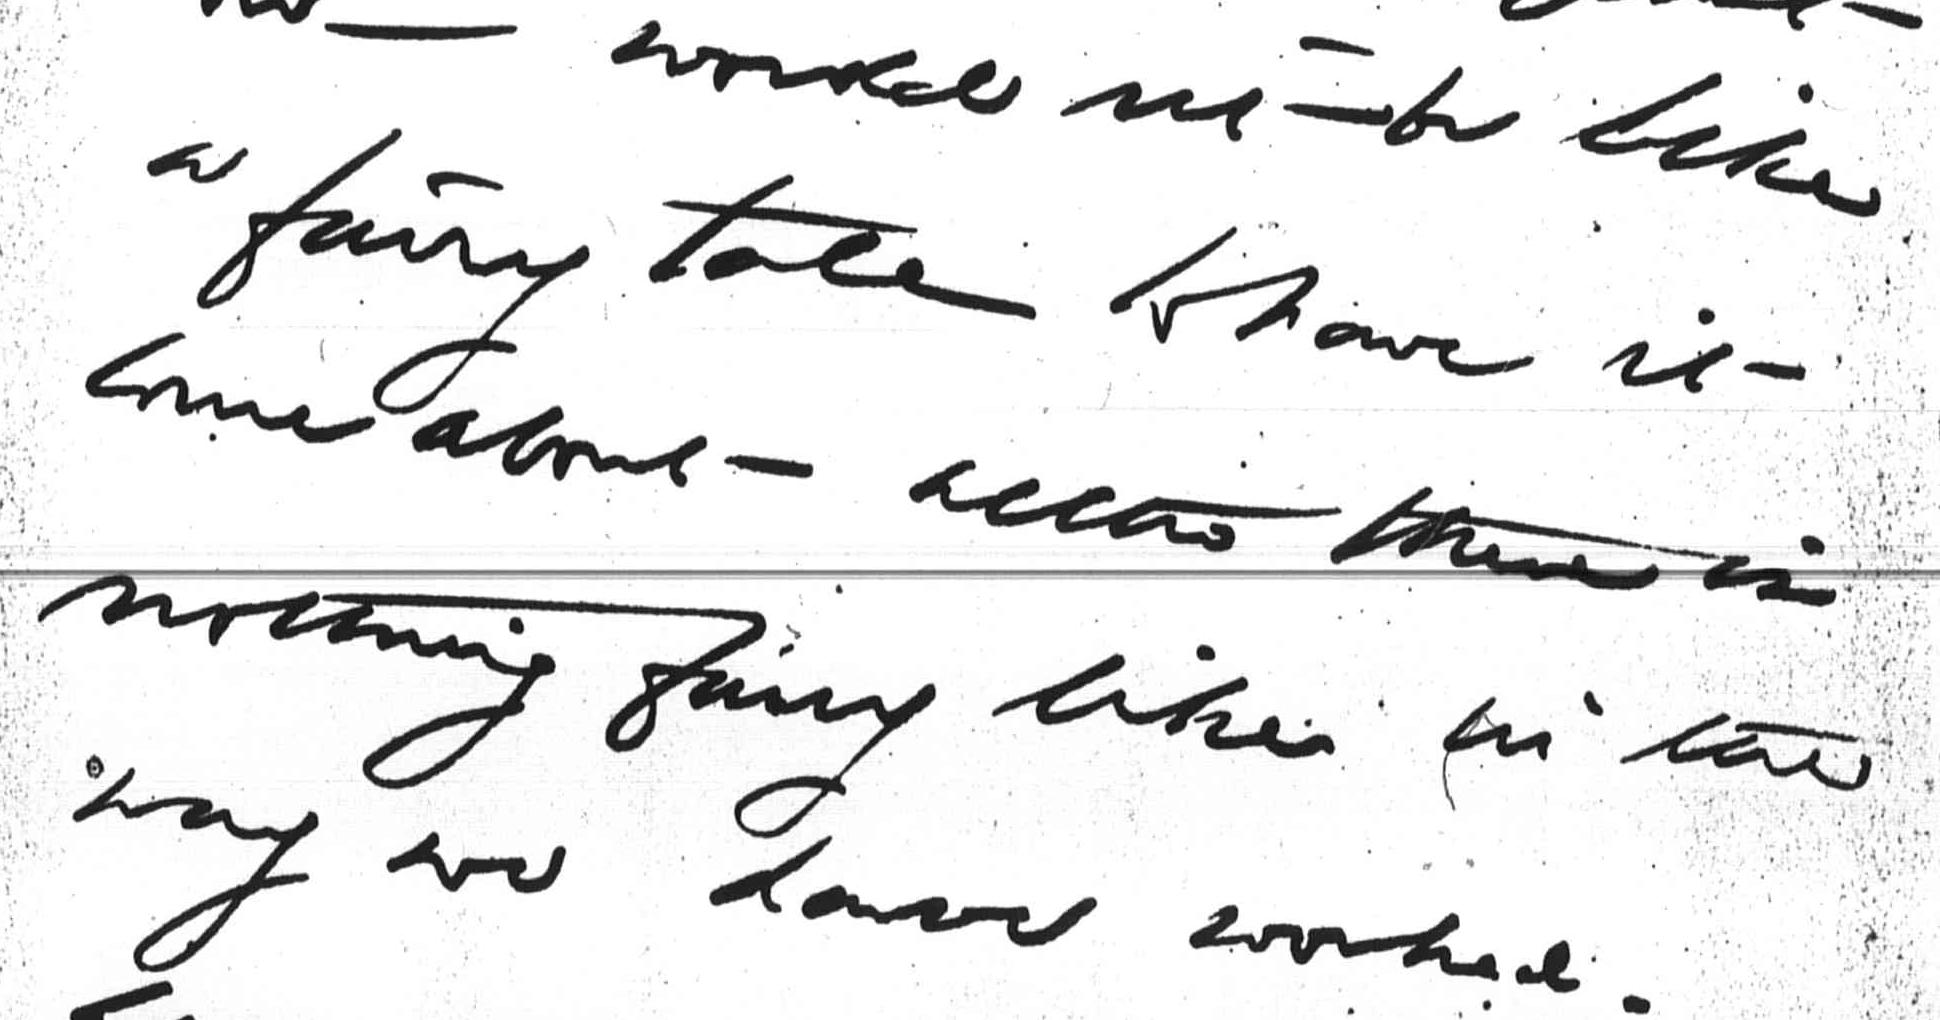 would it be like
a fairy tale to have it
come about – altho there is
nothing fairy like in the
way we have worked.